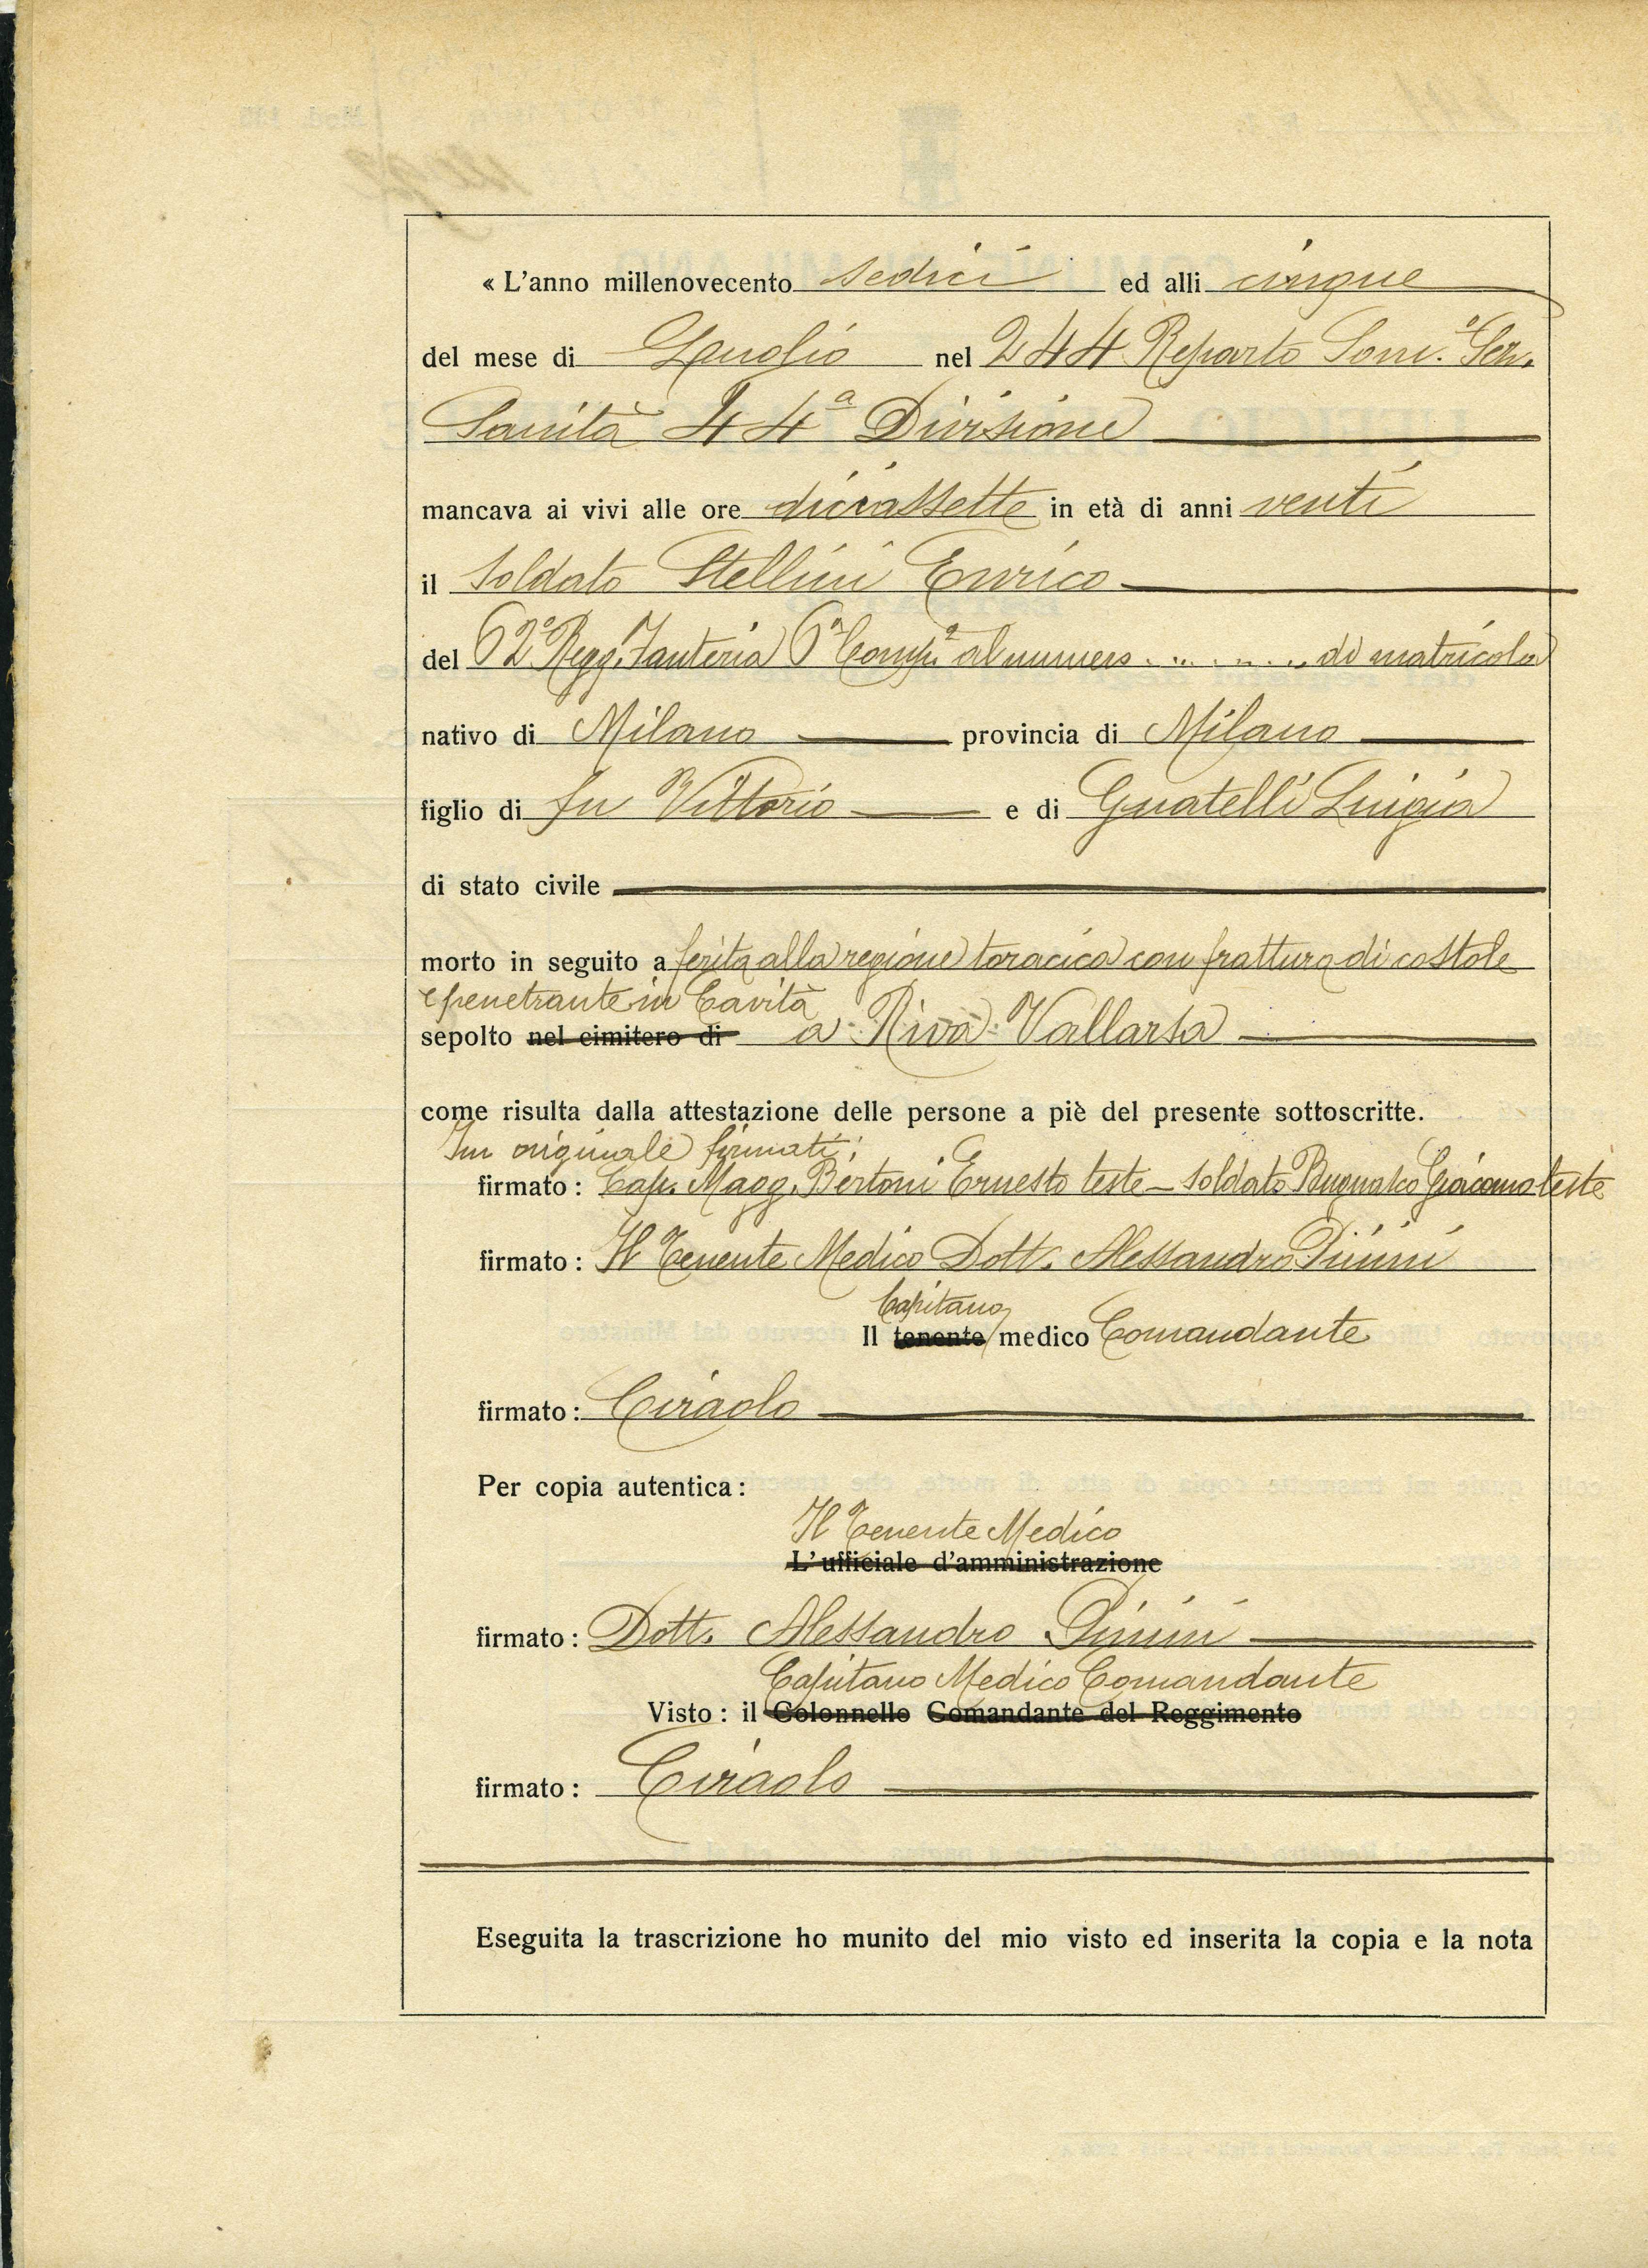 « L'anno millenovecento sedici ed alli cinque
del mese di Lauglio nel 244 Reparto Som. Ser.
Sanità 44ª Divisione
mancava ai vivi alle ore diciassette in età di anni venti
il Soldato Stellini Enrico
del 62º Regg. Fanteria 6ª Compª al numero . ... . ... . di matricola
nativo di Milano provincia di Milano
figlio di fu Vittorio e di Guatelli Luigia
di stato civile
morto in seguito a ferita alla regione toracica con frattura di costole
e penetrante in Cavità
sepolto nel cimitero di a Riva Vallarsa
come risulta dalla attestazione delle persone a piè del presente sottoscritte.
In originale firmati:
firmato : Cap. Magg. Bertoni Ernesto teste - Soldato Giacomo teste
firmato : Il Tenente Medico Dott. Alessandro Pinini
Capitano
Il tenente medico Comandante
firmato : Ciraolo
Per copia autentica :
Il Tenente Medico
L'ufficiale d'amministrazione
firmato : Dott. Alessandro Pinini
Capitano Medico Comandante
Visto : il Colonnello Comandante del Reggimento
firmato : Ciraolo
Eseguita la trascrizione ho munito del mio visto ed inserita la copia e la nota